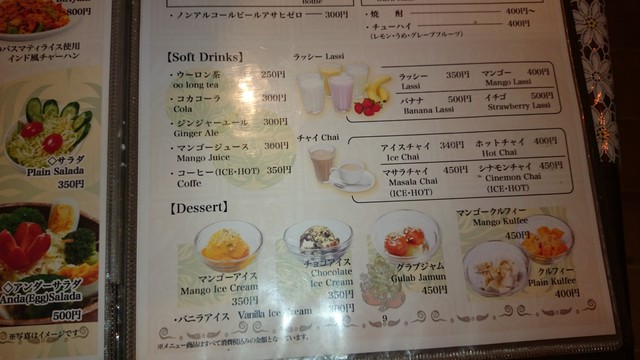 800円
バスマティライス使用
インド風チャーハン
◇サラダ
Plain Salada
350円
◇アンダーサラダ
Anda(Egg)Salada
500円
※写真はイメージです
・ノンアルコールビールアサヒゼロ 300円
・焼 酎 400円~
・チューハイ 400円
(レモン・うめ・グレープフルーツ)
【Soft Drinks】
・ウーロン茶 250円
oo long tea
・コカコーラ 300円
Cola
・ジンジャーエール 300円
Ginger Ale
・マンゴージュース 300円
Mango Juice
・コーヒー(ICE・HOT) 350円
Coffe
ラッシー Lassi
ラッシー 350円
Lassi
マンゴー 400円
Mango Lassi
バナナ 500円
Banana Lassi
イチゴ 500円
Strawberry Lassi
チャイ Chai
アイスチャイ 340円
Ice Chai
ホットチャイ 400円
Hot Chai
マサラチャイ 450円
Masala Chai
(ICE・HOT)
シナモンチャイ 450円
Cinemon Chai
(ICE・HOT)
【Dessert】
マンゴーアイス
Mango Ice Cream
350円
チョコアイス
Chocolate
Ice Cream
350円
グラブジャム
Gulab Jamun
450円
マンゴークルフィー
Mango Kulfee
450円
クルフィー
Plain Kulfee
400円
・バニラアイス Vanilla Ice Cream 300円
9
※メニュー商品はすべて消費税込みの金額となっています。